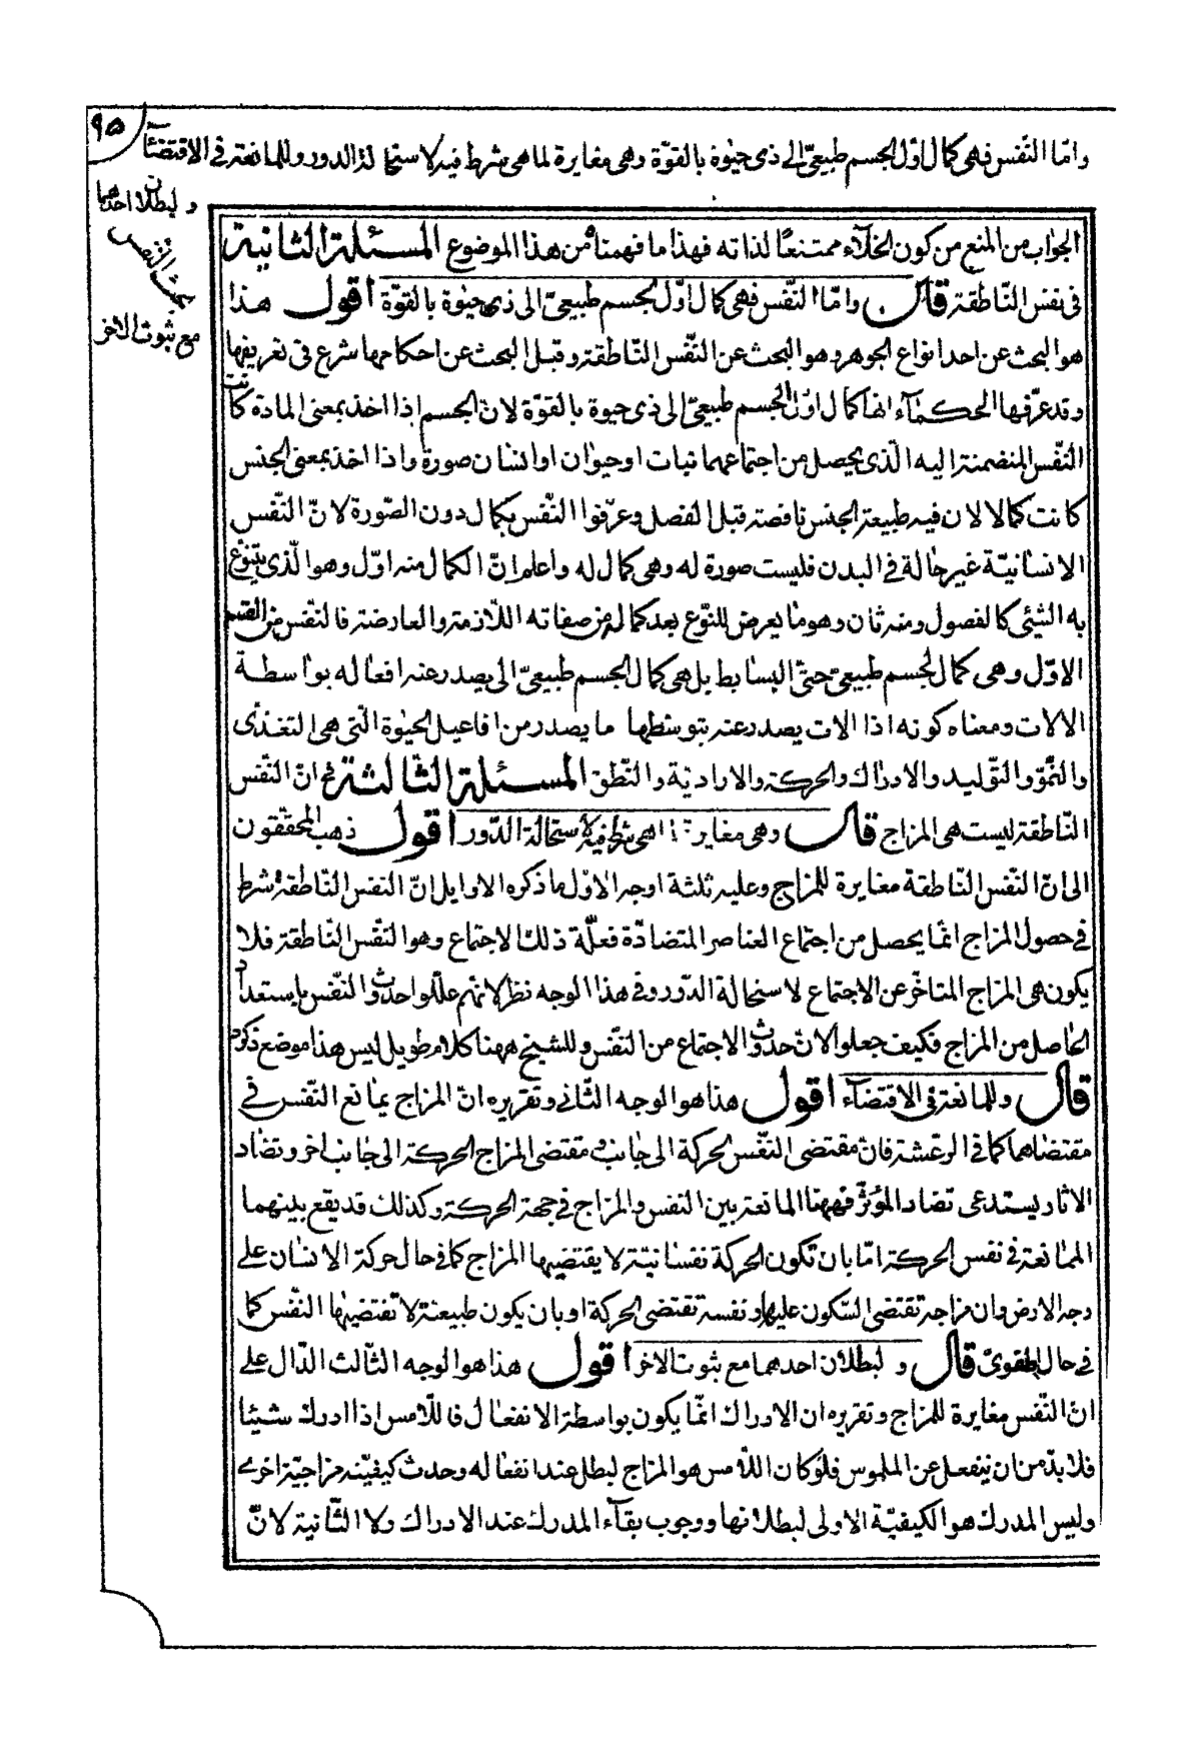 ٩٥
وامّا النّفس فهى كمال اوّل لجسم طبيعىّ الى ذى حيٰوة بالقوّة وهى مغايرة لما هى شرط فيه لاستحالة الدور وللممانعة فى الاقتضآء
ولبطلان احدهما
مع ثبوت الاخر
بحث النفس
الجواب من المنع من كون الخلآء ممتنعًا لذاته فهذا ما فهمناه من هذا الموضوع المسئلة الثانية
فى نفس النّاطقة قال وامّا النّفس فهى كمال اوّل لجسم طبيعىّ الى ذى حيٰوة بالقوّة اقول هذا
هو البحث عن احد انواع الجوهر وهو البحث عن النّفس النّاطقة وقبل البحث عن احكامها شرع فى تعريفها
وقد عرّفها الحكمآء انها كمال اوّل لجسم طبيعىّ الى ذى حيوة بالقوّة لانّ الجسم اذا اخذ بمعنى المادة كانت
النّفس المنضمنة اليه الّذى يحصل من اجتماعهما نبات او حيوٰان او انسٰان صورة واذا اخذ بمعنى الجنس
كانت كمالا لان فيه طبيعة الجنس ناقصة قبل الفصل وعرّفوا النّفس بكمال دون الصّورة لانّ النّفس
الانسٰانيّة غير حٰالة فى البدن فليست صورة له وهى كمال له واعلم انّ الكمال منه اوّل وهو الّذى يتنوّع
به الشيئى كالفصول ومنه ثان وهو مٰا يعرض للنّوع بعد كماله من صفاته اللّازمة والعارضة فالنّفس من القسم
الاوّل وهى كمال لجسم طبيعىّ حتى البسٰايط بل هى كمال لجسم طبيعىّ الى يصدر عنه افعٰاله بوٰاسطة
الالات ومعناه كونه اذا الات يصدر عنه بتوسّطها ما يصدر من افاعيل الحيٰوة الّتى هى التغذى
والنّموّ والتّوليد والادرٰاك والحركة والاراديّة والنّطق المسئلة الثّالثة فى انّ النّفس
النّاطقة ليست هى المزاج قال وهى مغايرة لما هى شرط فيه لاستحالة الدّور اقول ذهب المحقّقون
الى انّ النّفس النّاطقة مغايرة للمزاج وعليه ثلثة اوجه الاوّل ما ذكره الاوايل انّ النّفس النّاطقة شرط
فى حصول المزاج انّما يحصل من اجتماع العناصر المتضادّة فعلّة ذلك الاجتماع وهو النّفس النّاطقة فلا
يكون هى المزاج المتاخّر عن الاجتماع لاستحالة الدّور وفى هذا الوجه نظر لانّهم علّلوا حدوث النّفس باستعداد
الحٰاصل من المزاج فكيف جعلوا الان حدوث الاجتماع من النّفس وللشيخ ههنا كلام طويل ليس هذا موضع ذكره
قال وللممانعة فى الاقتضآء اقول هذا هو الوجه الثّانى وتقريره انّ المزاج يمٰانع النّفس فى
مقتضٰاهما كما فى الرعشة فانّ مقتضى النّفس لحركة الى جٰانب ومقتضى المزاج الحركة الى جٰانب اخر وتضادّ
الاثار يستدعى تضاد المؤثّر فههنا الممانعة بين النفس والمزاج فى جهة الحركة وكذلك قد يقع بينهما
الممٰانعة فى نفس الحركة امّا بان تكون الحركة نفسٰانيّة لا يقتضيها المزاج كما فى حال حركة الانسٰان على
وجه الارض فان مزاجه تقتضى السّكون عليها ونفسه تقتضى الحركة او بان يكون طبيعيّة لا تقتضيهٰا النّفس كما
فى حال الهوىّ قال ولبطلان احدهما مع ثبوت الاخر اقول هذا هو الوجه الثّالث الدّال على
انّ النّفس مغايرة للمزاج وتقريره ان الادراك انّما يكون بواسطة الانفعٰال فاللّامس اذا ادرك شيئا
فلا بدّ من ان ينفعل عن الملموس فلو كان اللّامس هو المزاج لبطل عند انفعٰاله وحدث كيفيّته مزاجيّة اخرى
وليس المدرك هو الكيفيّة الاولى لبطلانها ووجوب بقآء المدرك عند الادراك ولا الثّانية لانّ